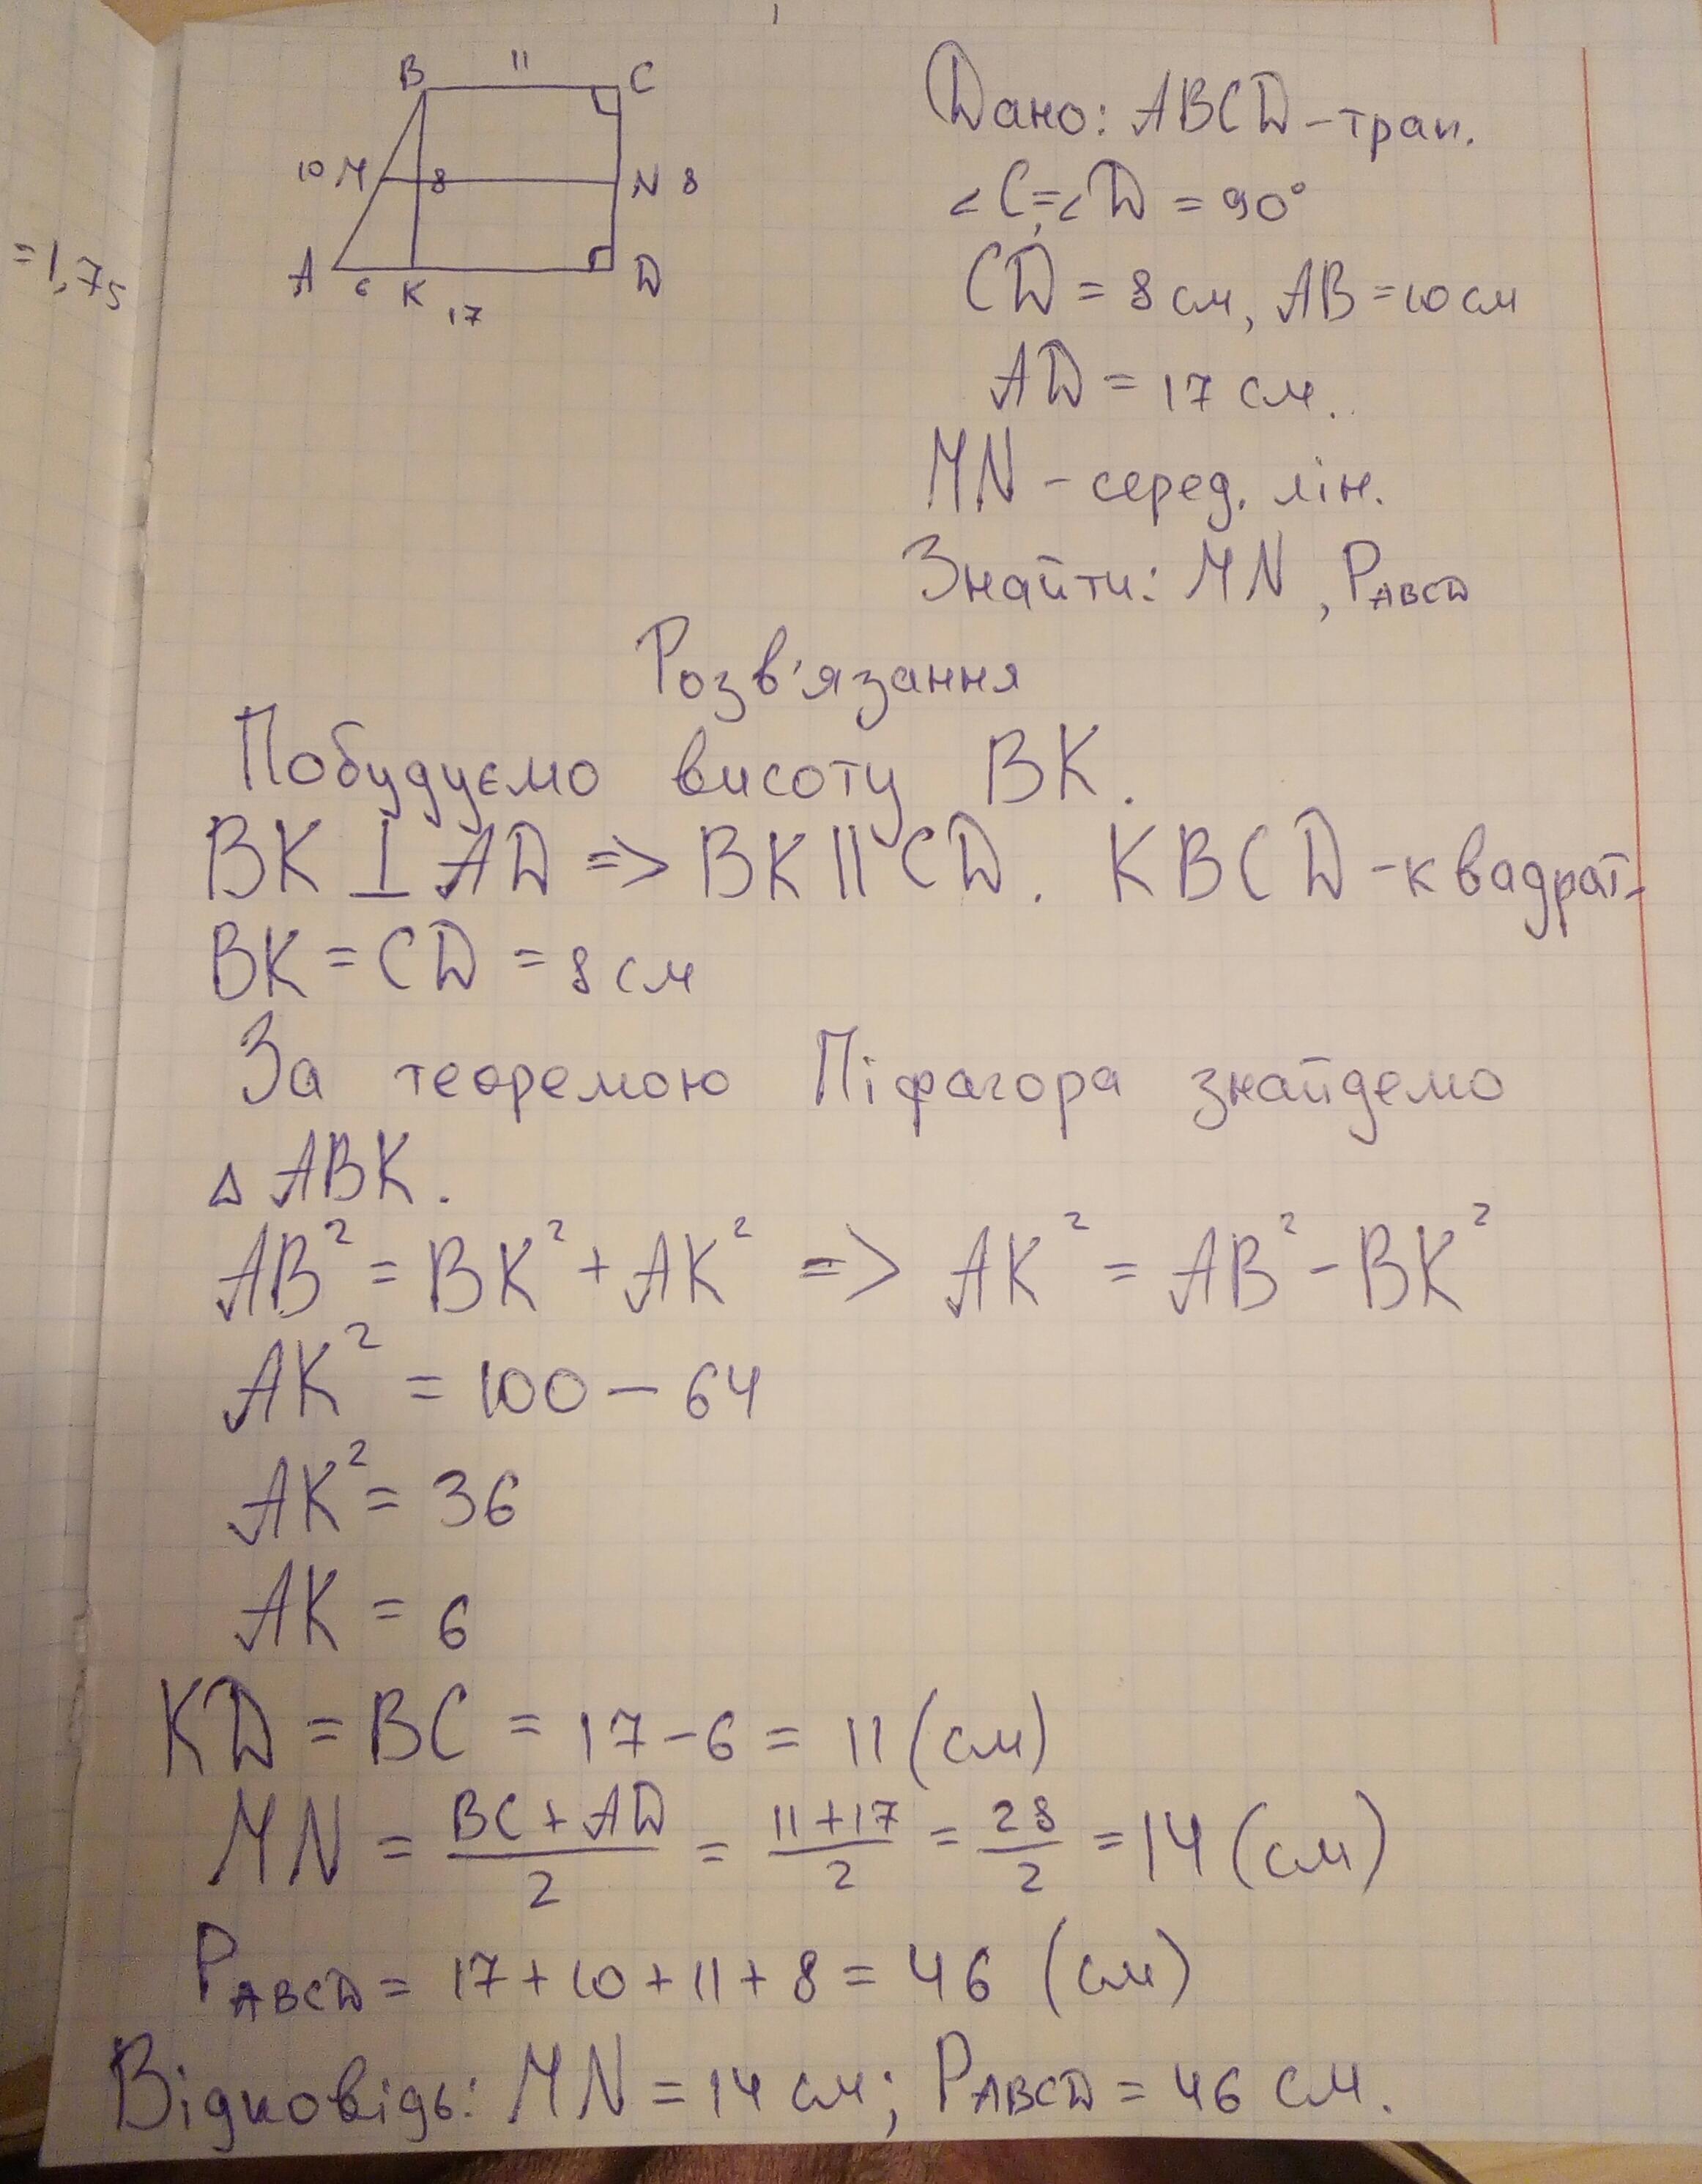 = 1,75
B 11 C
10 M 8 N 8
A 6 K 17 D
Дано: ABCD - трап.
∠C = ∠D = 90°
CD = 8 см, AB = 10 см
AD = 17 см.
MN - серед. лін.
Знайти: MN, P_ABCD
Розв'язання
Побудуємо висоту BK.
BK ⊥ AD => BK || CD. KBCD - квадрат.
BK = CD = 8 см
За теоремою Піфагора знайдемо
Δ ABK.
AB² = BK² + AK² => AK² = AB² - BK²
AK² = 100 - 64
AK² = 36
AK = 6
KD = BC = 17 - 6 = 11 (см)
MN = (BC + AD)/2 = (11 + 17)/2 = 28/2 = 14 (см)
P_ABCD = 17 + 10 + 11 + 8 = 46 (см)
Відповідь: MN = 14 см; P_ABCD = 46 см.